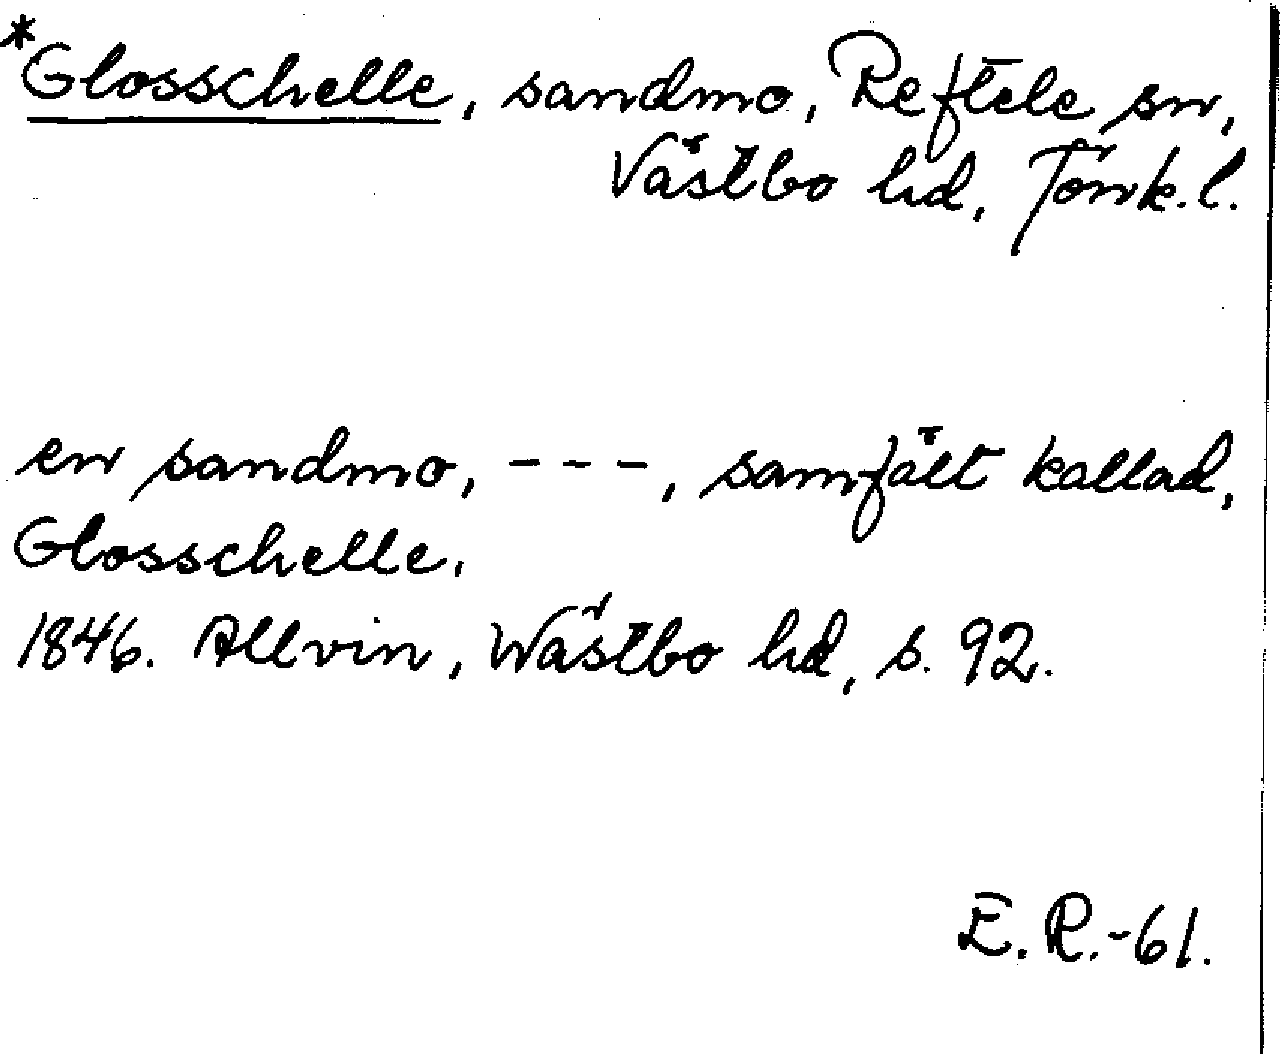 *Glosschelle, sandmo, Reftele sn,
Västbo hd, Jönk.l.
en sandmo, ---, samfält kallad,
Glosschelle.
1846. Allvin, Wästbo hd, s. 92.
E.R.-61.